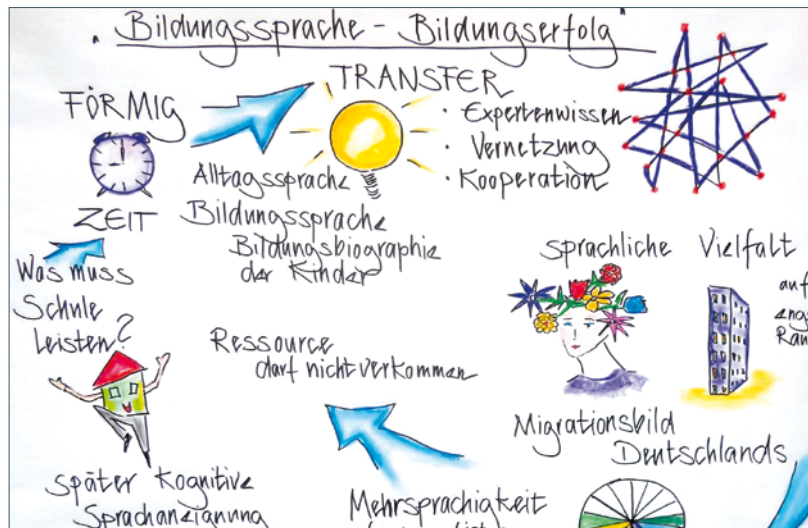 „Bildungssprache - Bildungserfolg"
FÖRMIG
TRANSFER
· Expertenwissen
· Vernetzung
· Kooperation
ZEIT
Alltagssprache
Bildungssprache
Bildungsbiographie
der Kinder
Was muss
Schule
Leisten?
Ressource
darf nicht verkommen
sprachliche Vielfalt
auf
Migrationsbild
Deutschlands
später Kognitive
Sprachaneignung
Mehrsprachigkeit